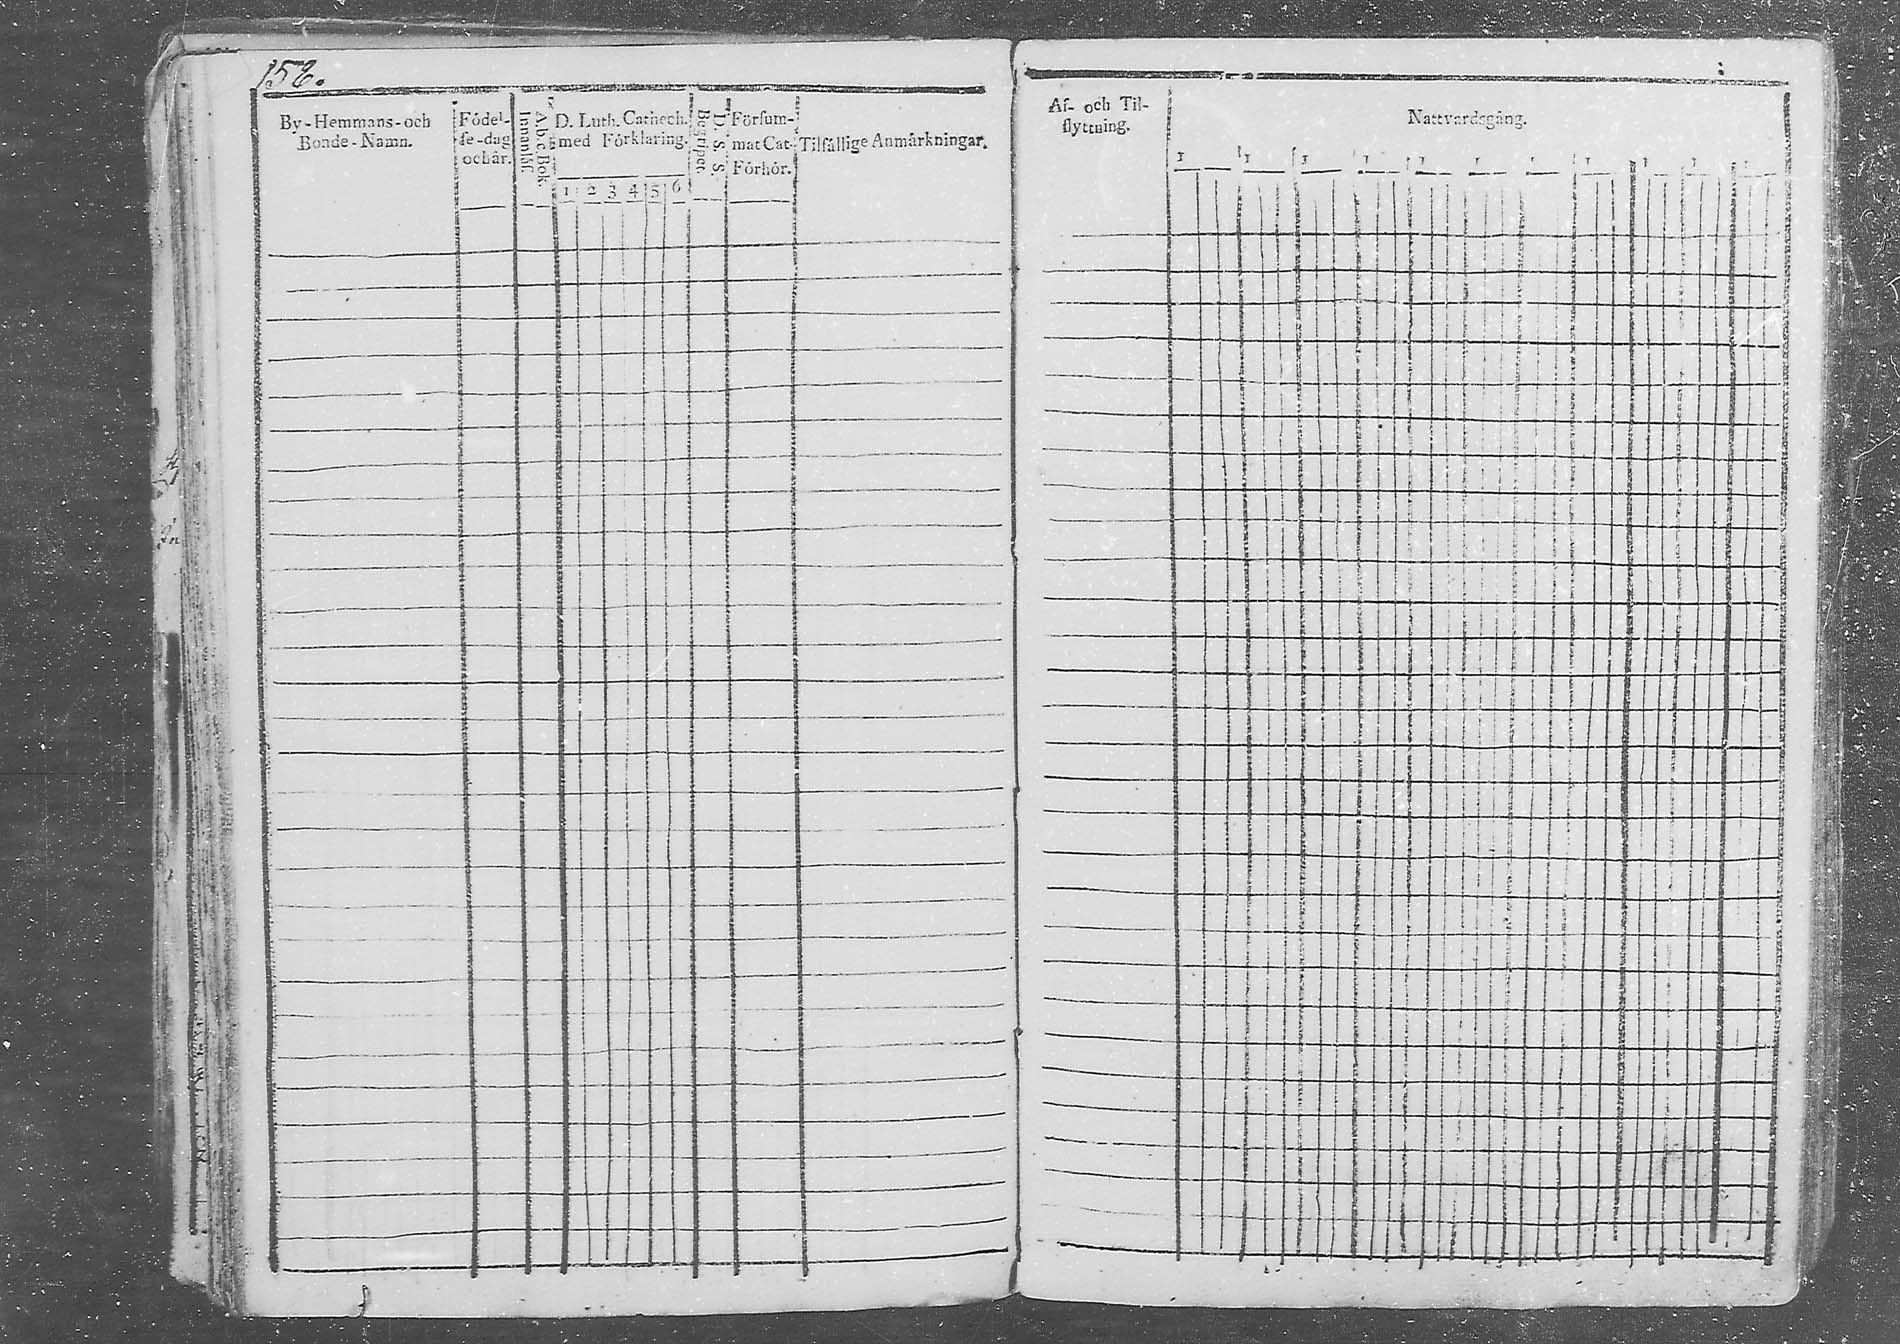 By-Hemmans-och
Bonde-Namn.
Födel-
se-dag
och år.
A.b.c.Bok.
Innanläsn.
D. Luth. Cathech.
med Förklaring.
1 2 3 4 5 6
D. S. S.
Begripet.
Försum-
mat Cat.
Förhör.
Tilfällige Anmärkningar.
Af- och Til-
flyttning.
Nattvardsgång.
1 1 1 1 1 1 1 1 1 1 1